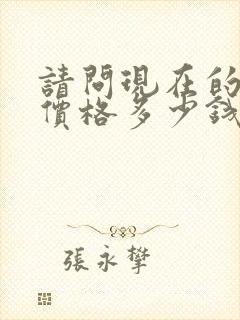 請問現在的
價格多少錢
張永攀